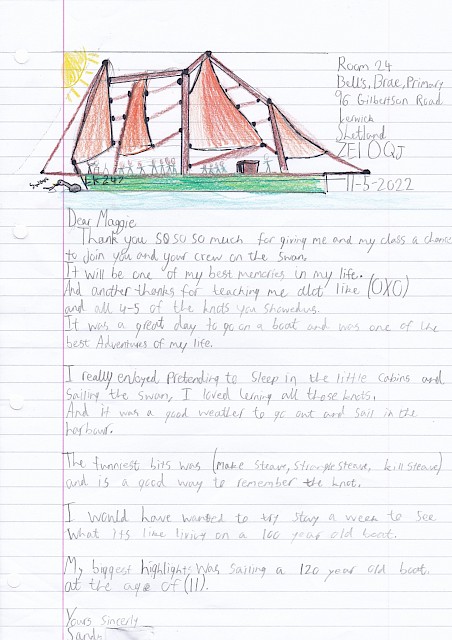 Room 24
Bell's, Brae, Primary
96 Gilbertson Road
Lerwick
Shetland
ZE1 0QJ
11-5-2022
LK 243
Dear Maggie
Thank you so so so much for giving me and my class a chance
to join you and your crew on the swan.
It will be one of my best memories in my life.
And another thanks for teaching me alot like (OXO)
and all 4-5 of the knots you showed us.
It was a great day to go on a boat and was one of the
best Adventures of my life.
I really enjoyed Pretending to sleep in the little cabins and
sailing the swan, I loved lerning all those knots.
And it was a good weather to go out and sail in the
harbour.
The funniest bits was (make steave, strangle steave, kill steave)
and is a good way to remember the knot.
I would have wanted to try stay a week to see
what its like living on a 100 year old boat.
My biggest highlights was sailing a 120 year old boat.
at the age of (11).
Yours sincerly